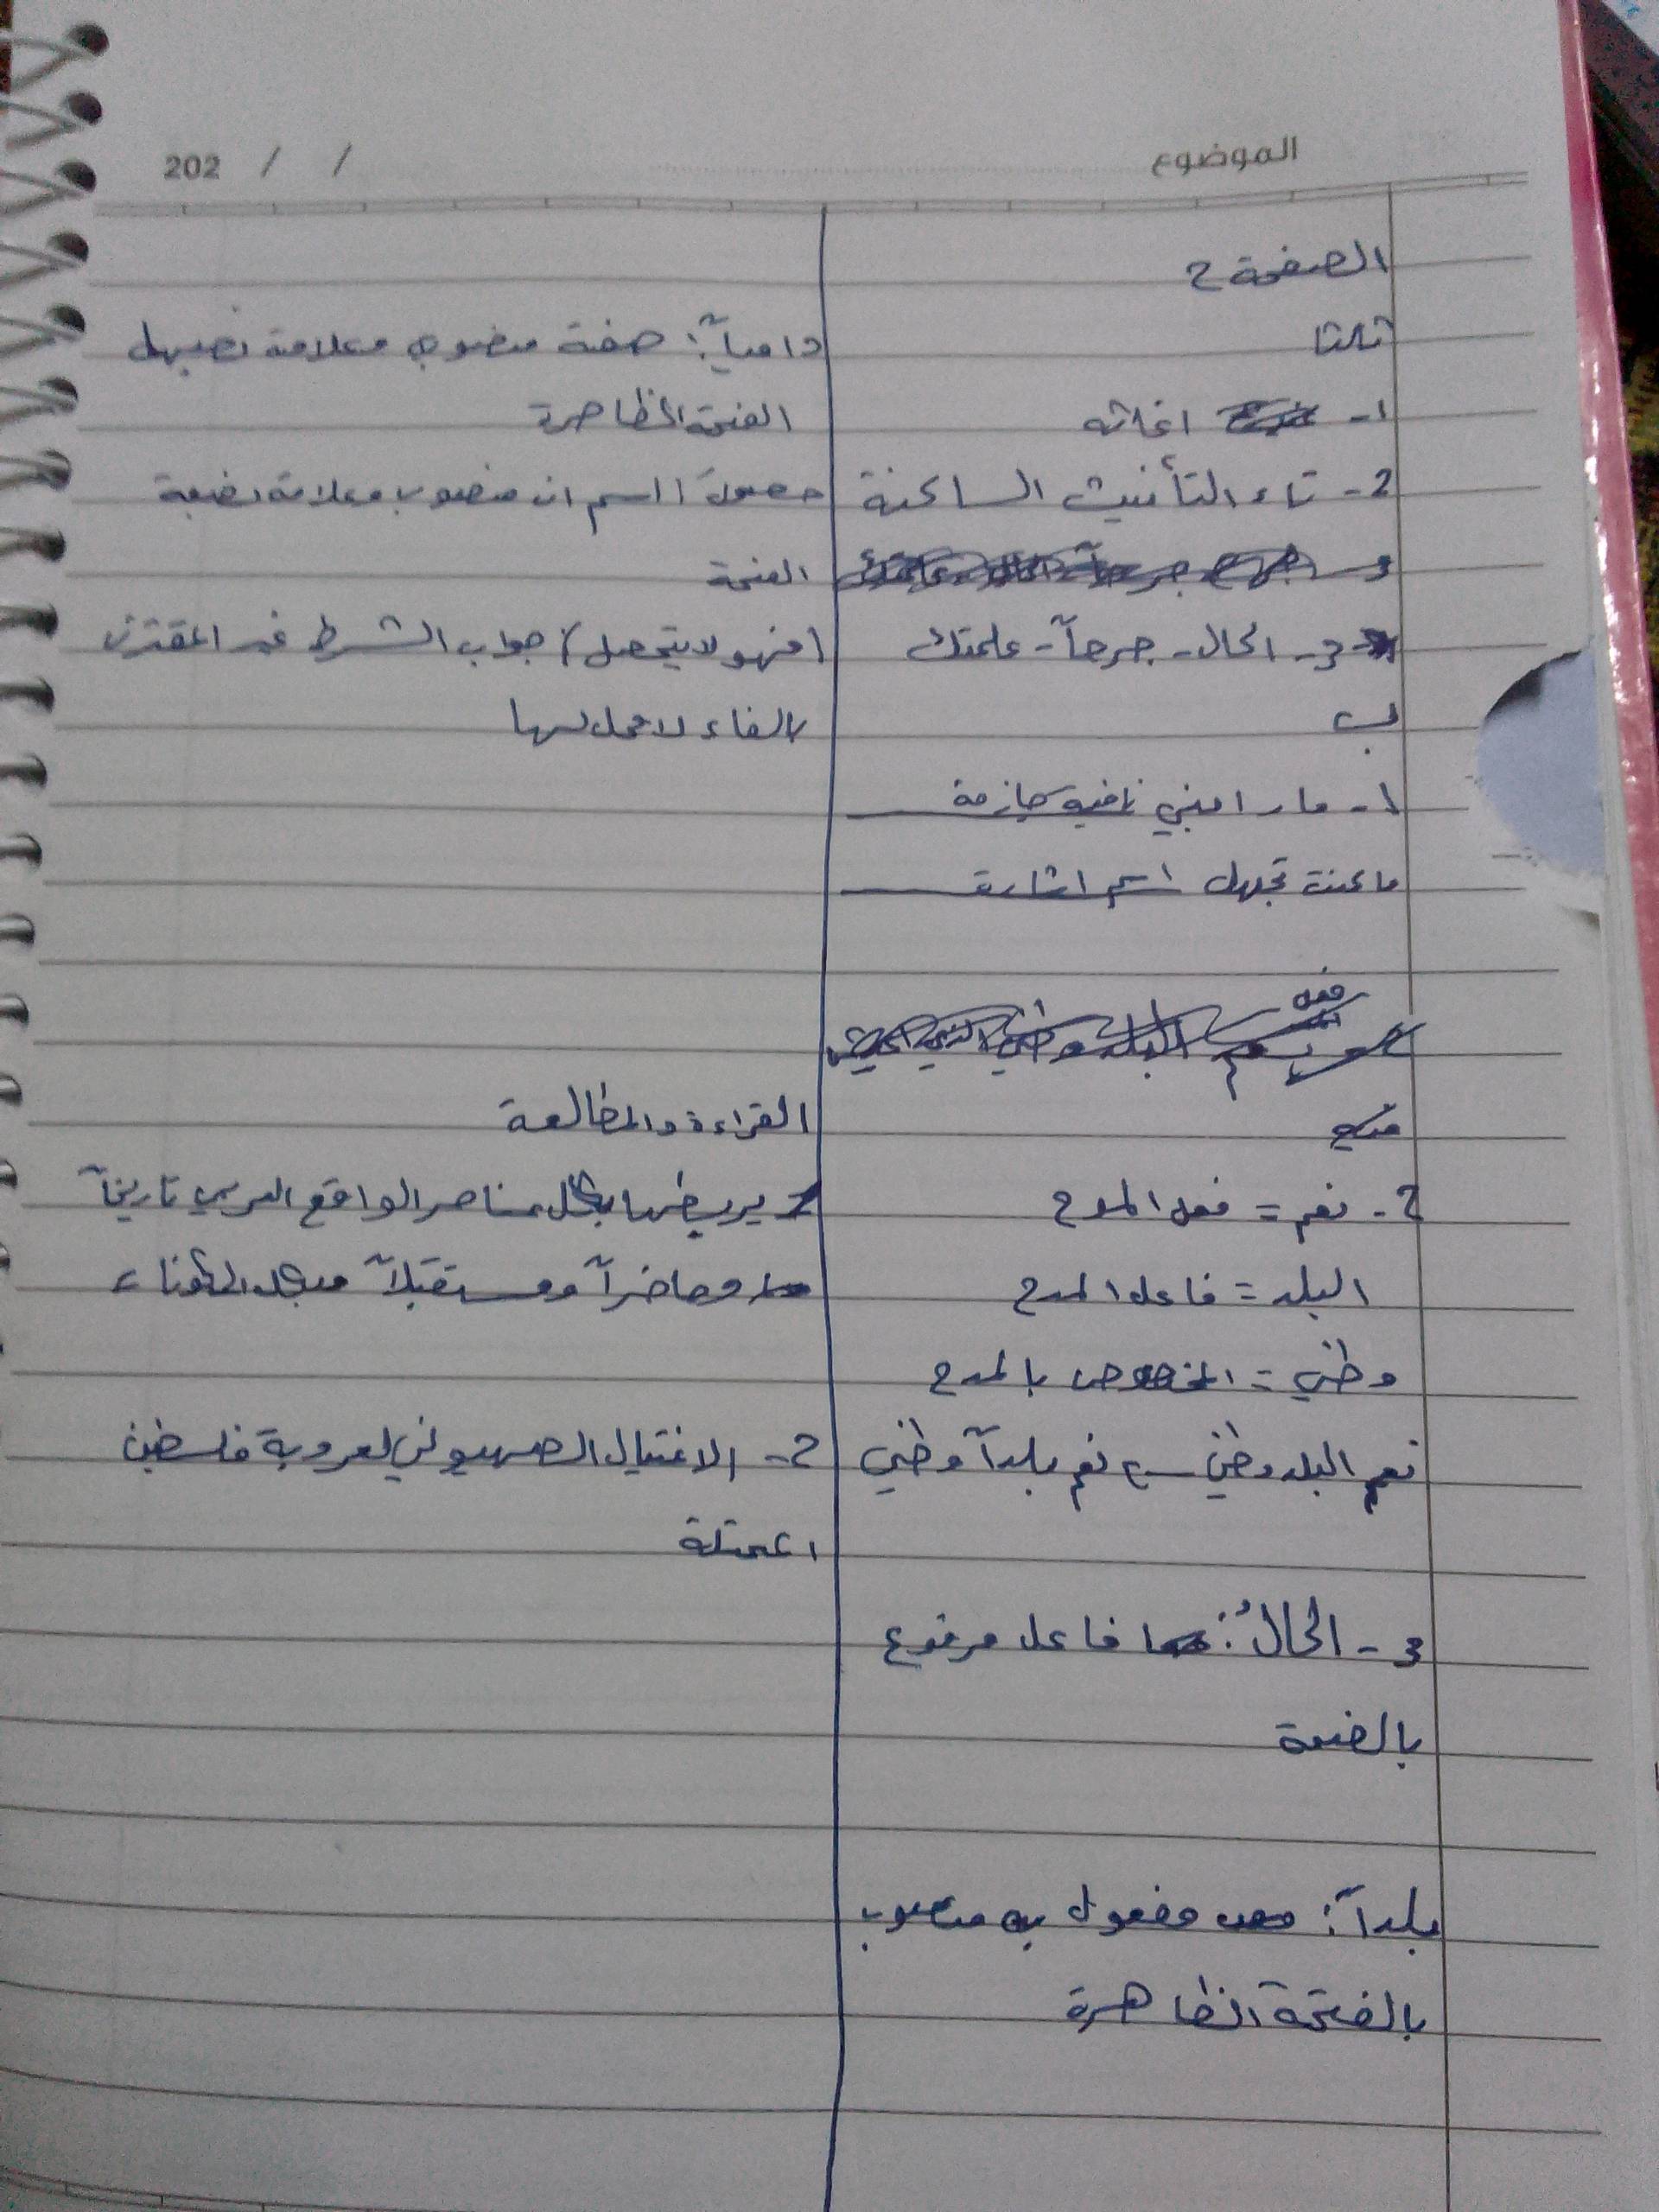 الموضوع
202 / /
الصفحة 2
ثالثا
1- اغاثه
2- تاء التأنيث الساكنة
3- الحال - جرحاً - علمتك
ب
1- ما رامني نافية جازمة
ما كنت تجهل اسم اشارة
2- نعم = فعل المدح
البلد = فاعل المدح
وطني = المخصوص بالمدح
نعم البلد وطني نعم بلداً وطني
3- الحالُ: فاعل مرفوع
بالضمة
بلداً: مفعول به منصوب
بالفتحة الظاهرة
دامياً: صفة منصوب وعلامة نصبها
الفتحة الظاهرة
اسم ان منصوب وعلامة نصبه
الفتحة
(فهو لا يتحمل) جواب الشرط غير المقترن
بالفاء لا محل لها
القراءة والمطالعة
يربطها بكل عناصر الواقع العربي تاريخاً
وحاضراً ومستقبلاً
2- الاغتيال الصهيوني لعروبة فلسطين
المحتلة